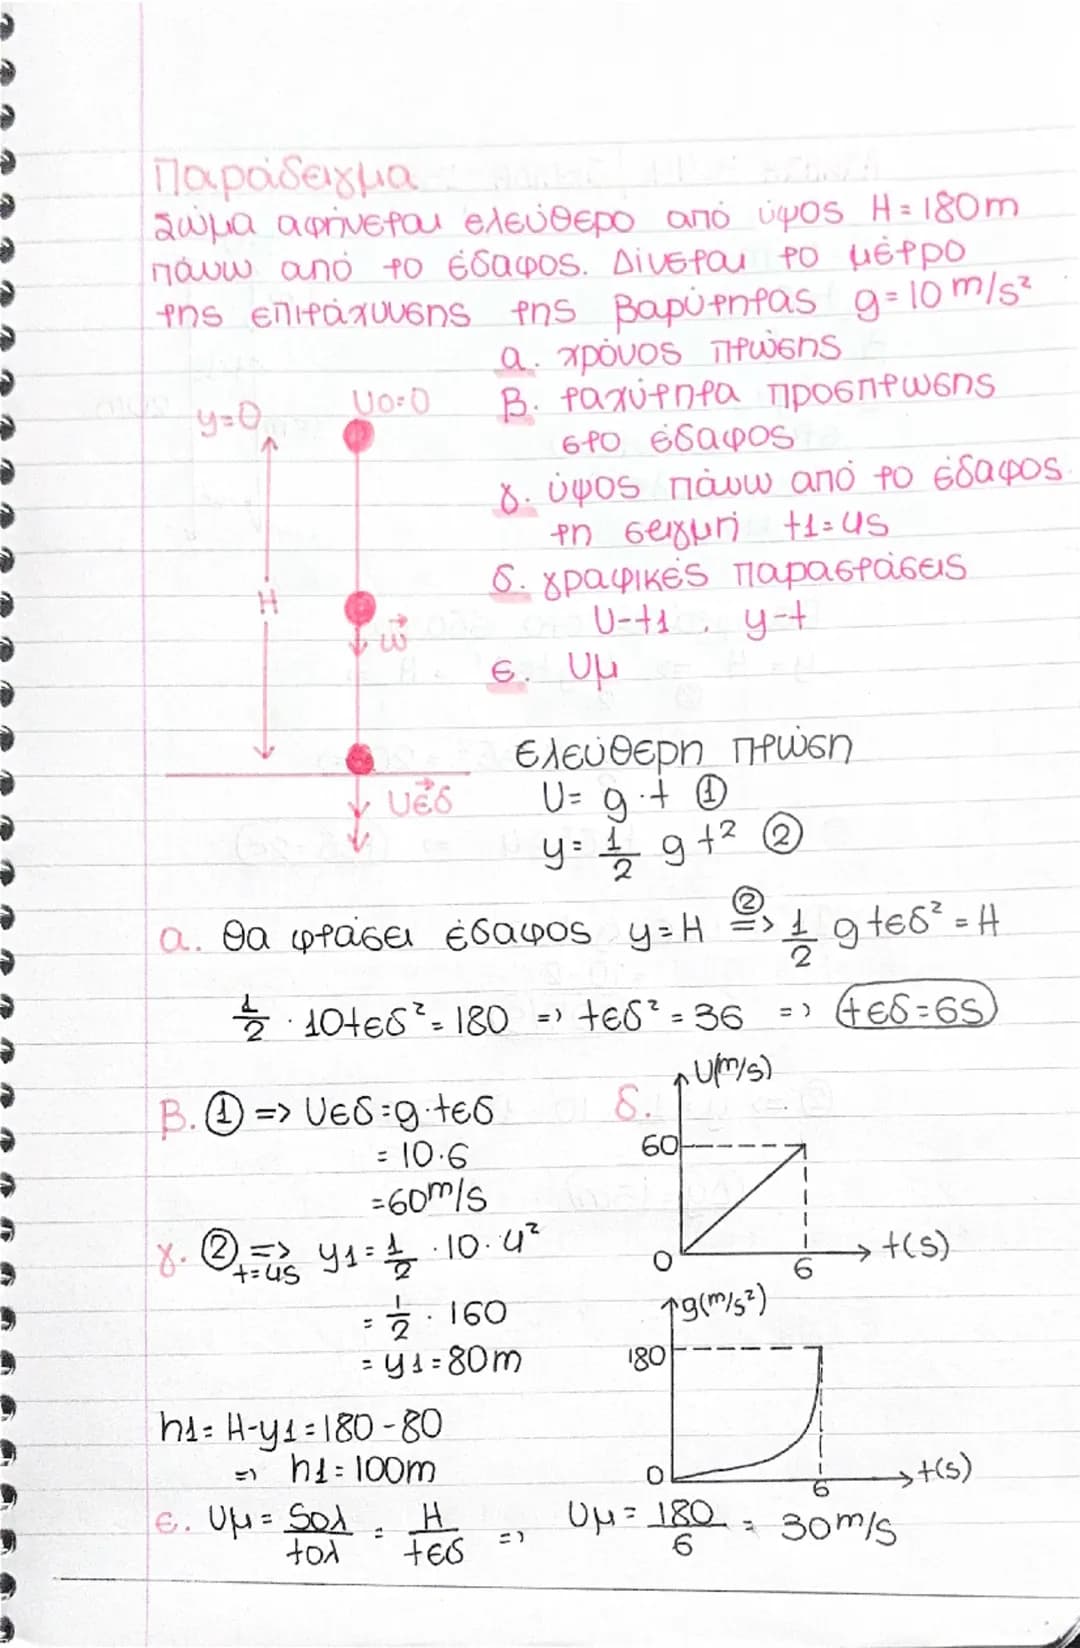 Παράδειγμα
Σώμα αφήνεται ελεύθερο από ύψος H=180m
πάνω από το έδαφος. Δίνεται το μέτρο
της επιτάχυνσης της βαρύτητας g=10 m/s²
α. χρόνος πτώσης
β. ταχύτητα προσπτωσης
στο έδαφος
γ. ύψος πάνω από το έδαφος
τη στιγμή t1=4s
δ. γραφικές παραστάσεις
U-t1, y-t
ε. Uμ
y=0
U0=0
H
w⃗
U⃗εδ
ελεύθερη πτώση
U= g·t ①
y= 1/2 gt² ②
α. Θα φτάσει έδαφος y=H ②=> 1/2 g tεδ² = H
1/2 · 10tεδ² = 180 => tεδ² = 36 => tεδ=6s
β. ① => Uεδ=g·tεδ
= 10·6
=60m/s
γ. ② =>t=4s y1= 1/2 ·10·4²
= 1/2 · 160
= y1=80m
h1= H-y1=180-80
=> h1=100m
δ.
U(m/s)
60
0
6
t(s)
g(m/s²)
180
0
6
t(s)
ε. Uμ = Sολ/tολ = H/tεδ => Uμ = 180/6 = 30m/s